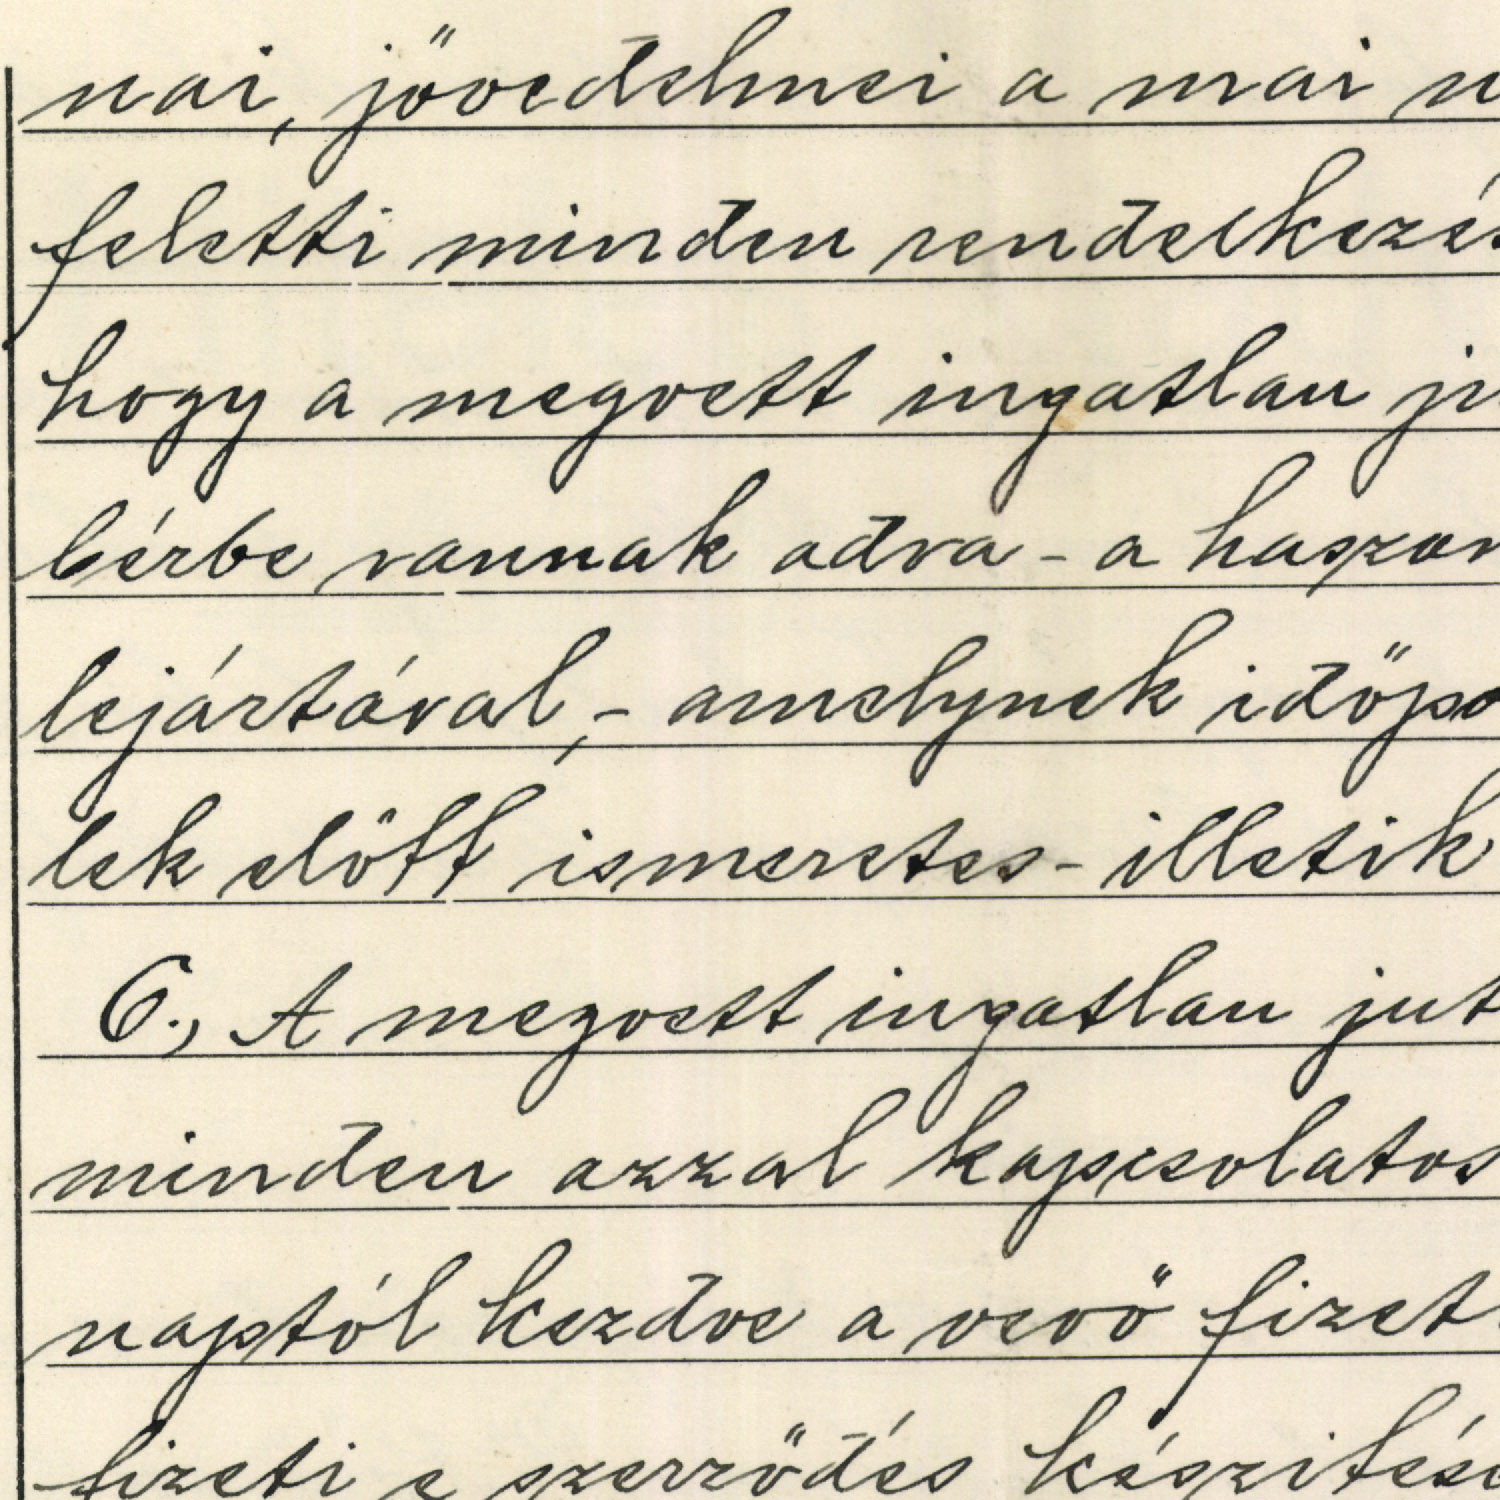 nai, jövedelmei a mai n
feletti minden rendelkezés
hogy a megvett ingatlan ju
bérbe vannak adva - a haszon
lejártával, - amelynek időpo
lek előtt ismeretes - illetik
6., A megvett ingatlan jut
minden azzal kapcsolatos
naptól kezdve a vevő fizet
fizeti e szerződés készítésé